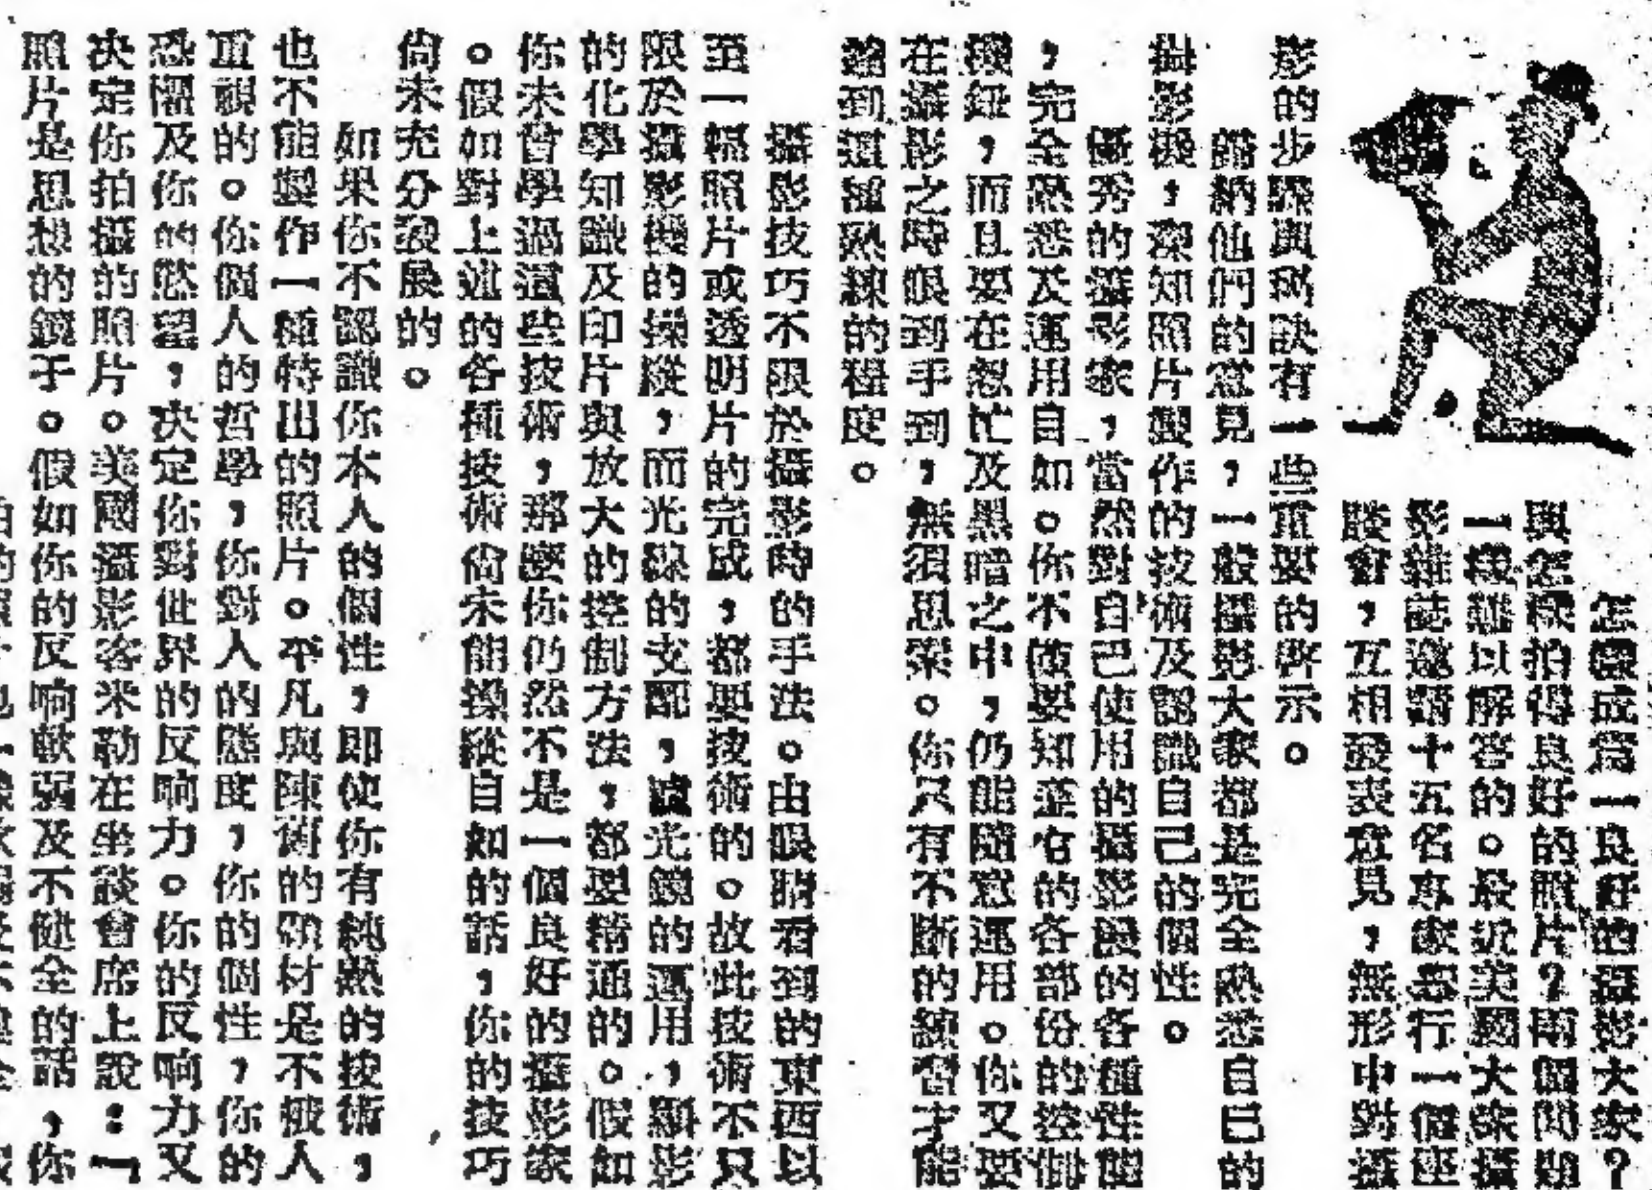 怎樣成為一良好的攝影大家？
與怎樣拍得良好的照片？兩個問題
一樣難以解答的。最近美國大衆攝
影雜誌邀請十五名專家舉行一個座
談會，互相發表意見，無形中對攝
影的步驟與秘訣有一些重要的啓示。
歸納他們的意見，一般攝影大家都是完全熟悉自己的
攝影機，深知照片製作的技術及認識自己的個性。
優秀的攝影家，當然對自己使用的攝影機的各種性能
，完全熟悉及運用自如。你不但要知道它的各部份的控制
機鈕，而且要在怱忙及黑暗之中，仍能隨意運用。你又要
在攝影之時眼到手到，無須思索。你只有不斷的練習才能
達到這種熟練的程度。
攝影技巧不限於攝影時的手法。由眼睛看到的東西以
至一幅照片或透明片的完成，都要技術的。故此技術不只
限於攝影機的操縱，而光線的支配，濾光鏡的運用，顯影
的化學知識及印片與放大的控制方法，都要精通的。假如
你未曾學過這些技術，那麼你仍然不是一個良好的攝影家
。假如對上述的各種技術尚未能操縱自如的話，你的技巧
尚未充分發展的。
如果你不認識你本人的個性，即使你有純熟的技術，
也不能製作一種特出的照片。平凡與陳舊的題材是不被人
重視的。你個人的哲學，你對人的態度，你的個性，你的
恐懼及你的慾望，决定你對世界的反响力。你的反响力又
决定你拍攝的照片。美國攝影客米勒在坐談會席上說：「
照片是思想的鏡子。假如你的反响軟弱及不健全的話，你